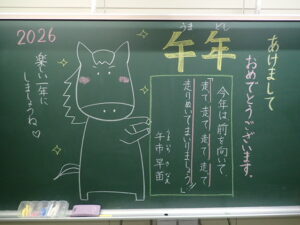 2026
楽しい一年に
しましょうね♡
うま どし
午年
あけまして
おめでとうございます。
今年は前を向いて、
走って、走って、走って、走って
走りぬいてまいりましょう!!
午市 早苗